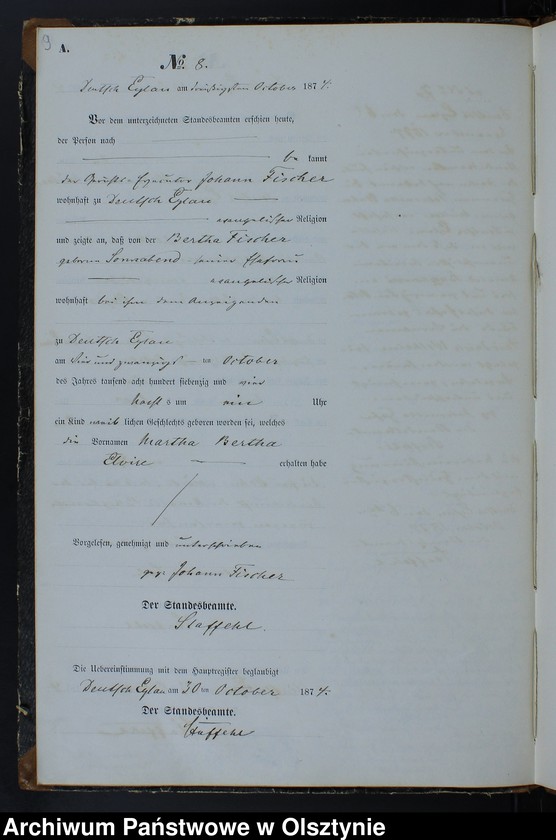 9
A.
No. 8.
Deutsch Eylau am dreißigsten October 1874.
Vor dem unterzeichneten Standesbeamten erschien heute,
der Person nach
be kannt
der Johann Fischer
wohnhaft zu Deutsch Eylau
evangelischer Religion
und zeigte an, daß von der Bertha Fischer
geborne Sonnabend seiner Ehefrau
evangelischer Religion
wohnhaft bei ihm dem Anzeigenden
zu Deutsch Eylau
am vier und zwanzigs ten October
des Jahres tausend acht hundert siebenzig und vier
Nachts um ein Uhr
ein Kind weib lichen Geschlechts geboren worden sei, welches
die Vornamen Martha Bertha
Elvire erhalten habe
Vorgelesen, genehmigt und unterschrieben
gez. Johann Fischer
Der Standesbeamte.
Staffehl.
Die Uebereinstimmung mit dem Hauptregister beglaubigt
Deutsch Eylau am 30 ten October 1874.
Der Standesbeamte.
Staffehl
Archiwum Państwowe w Olsztynie